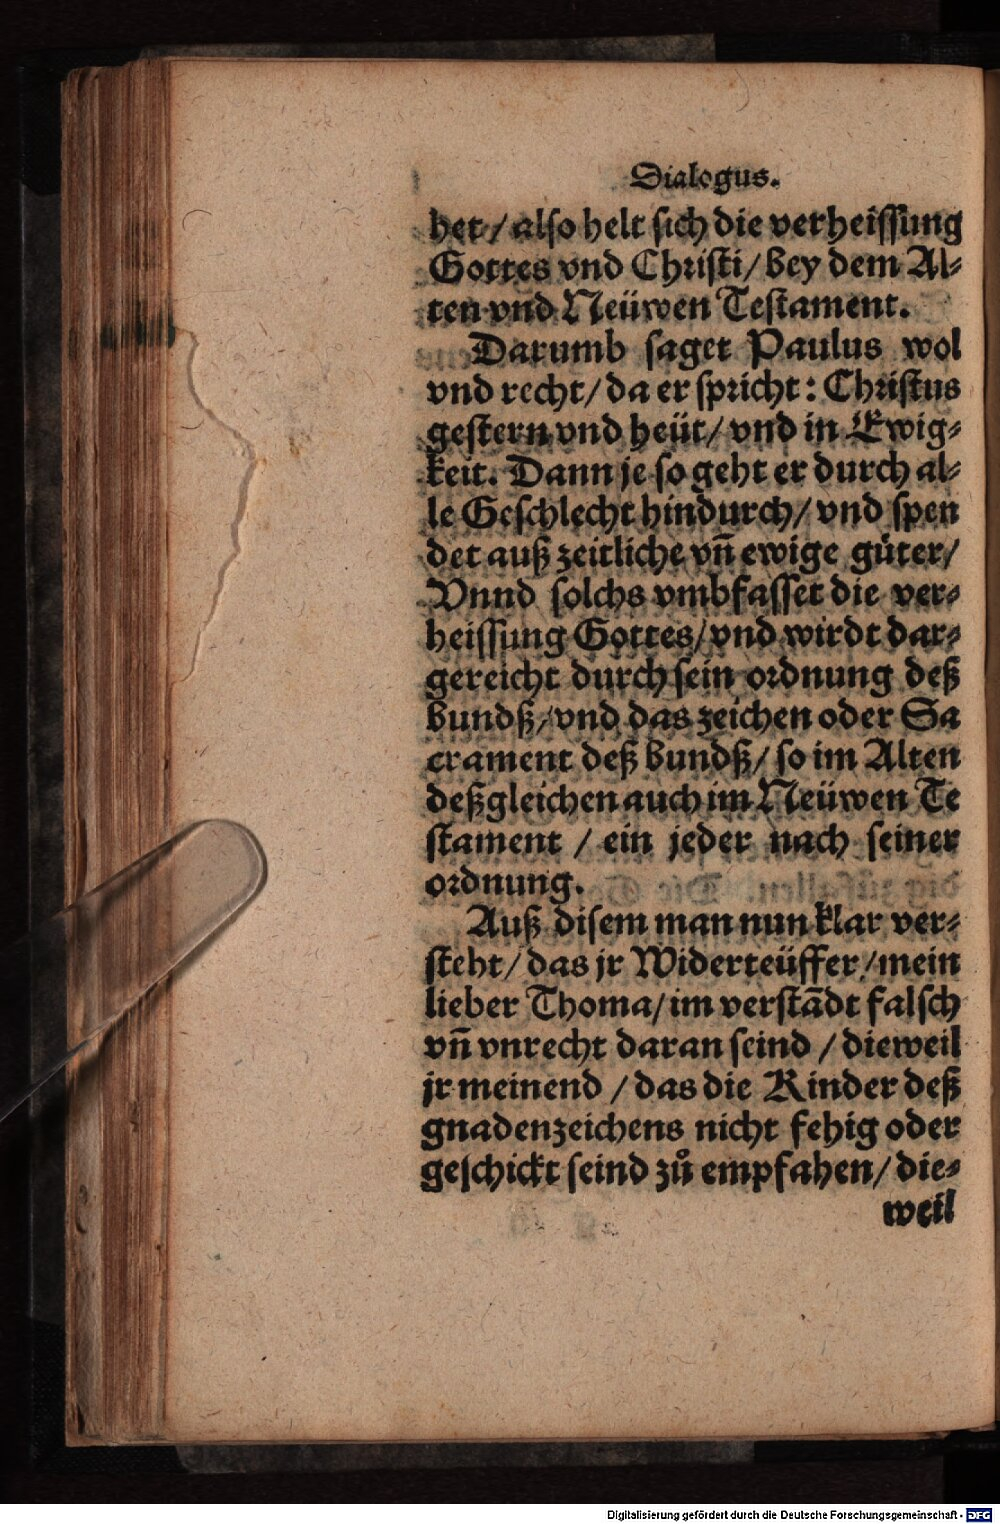 Dialogus.
het / also helt sich die verheissung
Gottes vnd Christi / bey dem Al⸗
ten vnd Neüwen Testament.
Darumb saget Paulus wol
vnd recht / da er spricht : Christus
gestern vnd heüt / vnd in Ewig⸗
keit. Dann je so geht er durch al⸗
le Geschlecht hindurch / vnd spen
det auß zeitliche vñ ewige güter /
Vnnd solchs vmbfasset die ver⸗
heissung Gottes / vnd wirdt dar⸗
gereicht durch sein ordnung deß
bundß / vnd das zeichen oder Sa
crament deß bundß / so im Alten
deßgleichen auch im Neüwen Te
stament / ein jeder nach seiner
ordnung.
Auß disem man nun klar ver⸗
steht / das jr Widerteüffer / mein
lieber Thoma / im verstãdt falsch
vñ vnrecht daran seind / dieweil
jr meinend / das die Kinder deß
gnadenzeichens nicht fehig oder
geschickt seind zů empfahen / die⸗
weil
Digitalisierung gefördert durch die Deutsche Forschungsgemeinschaft - DFG